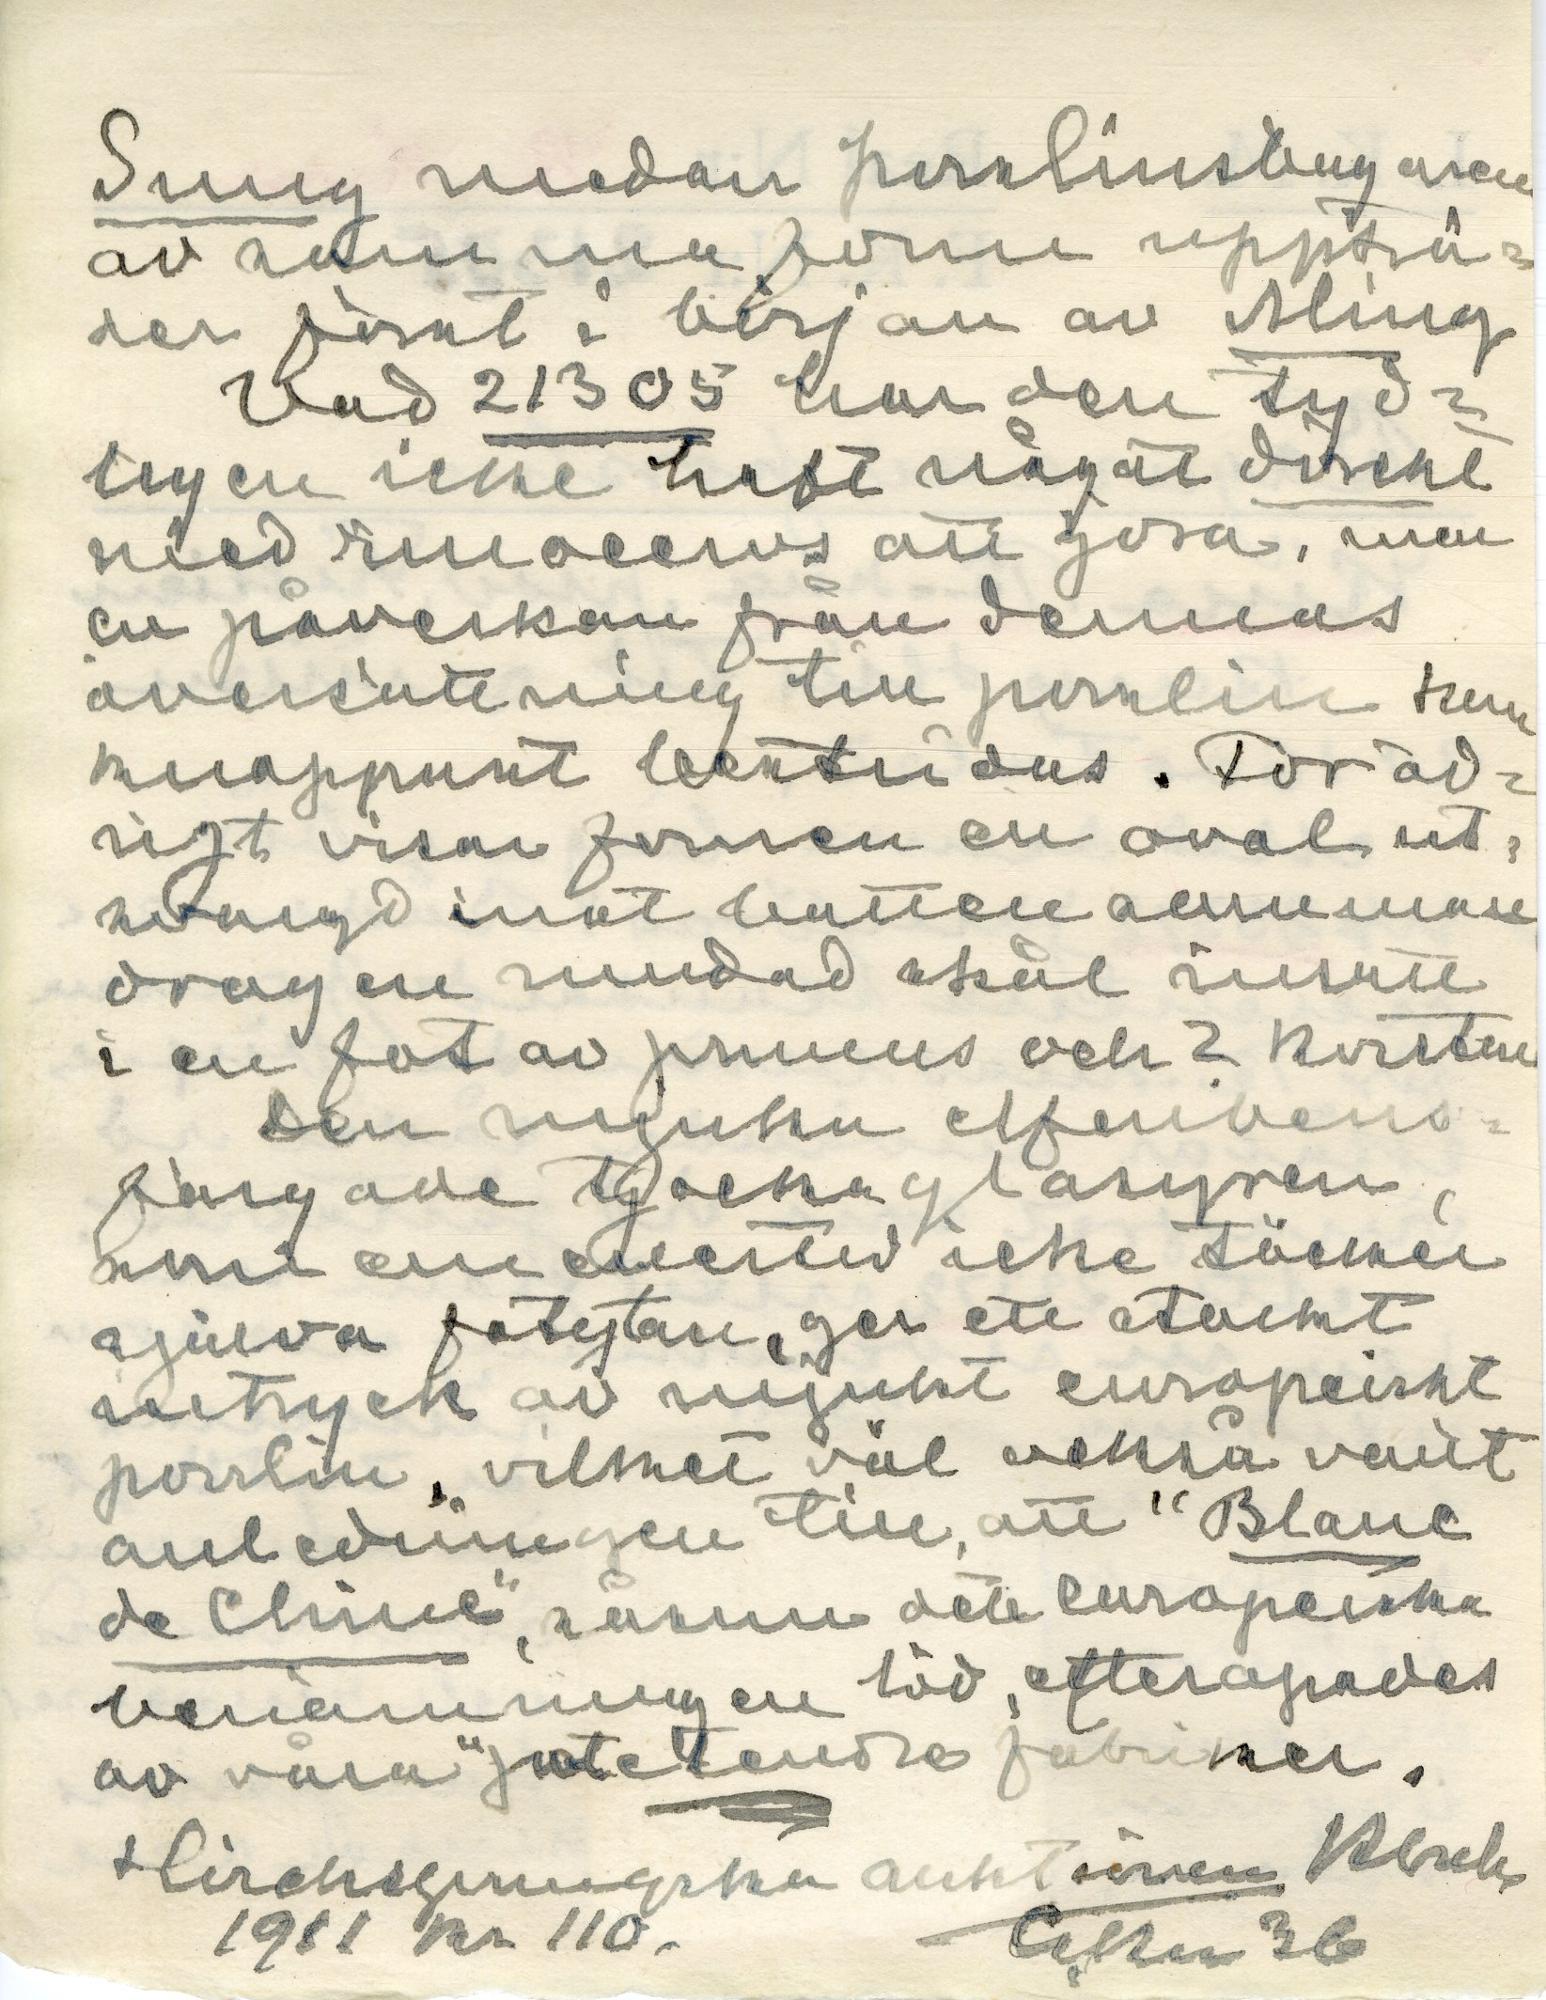 Sung medan porslinsbägaren
av samma form uppträ-
der först i början av Ming
Vad 21305 har den tyd-
ligen icke haft något direkt
med rinocerus att göra, men
en påverkan från dennas
översättning till porslin kan
knappast bestridas. För öd-
rigt visar formen en oval ut-
svängd inåt botten samman
dragen rundad skål insatt
i en fot av prunus och
Den mjuka elfenbens-
färgade tjocka glasyren,
som emellertid icke täcker
själva fotytan, ger ett starkt
intryck av mjukt europeiskt
porslin, vilket väl också varit
anledningen till, att "Blanc
de Chine", såsom den europeiska
benämningen löd, efterapades
av våra "pate tendre fabriker.
Hirchsprungska auktionen Kbrh.
1911 Kr 110.